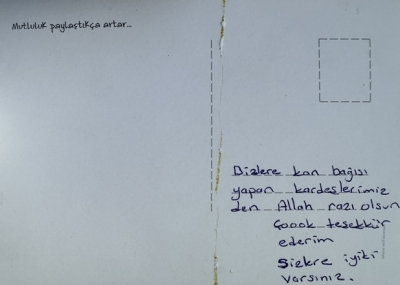 Mutluluk paylaştıkça artar...
Bizlere kan bağışı
yapan kardeşlerimiz
den Allah razı olsun
Çoook teşekkür
ederim
Sizlere iyiki
varsınız.